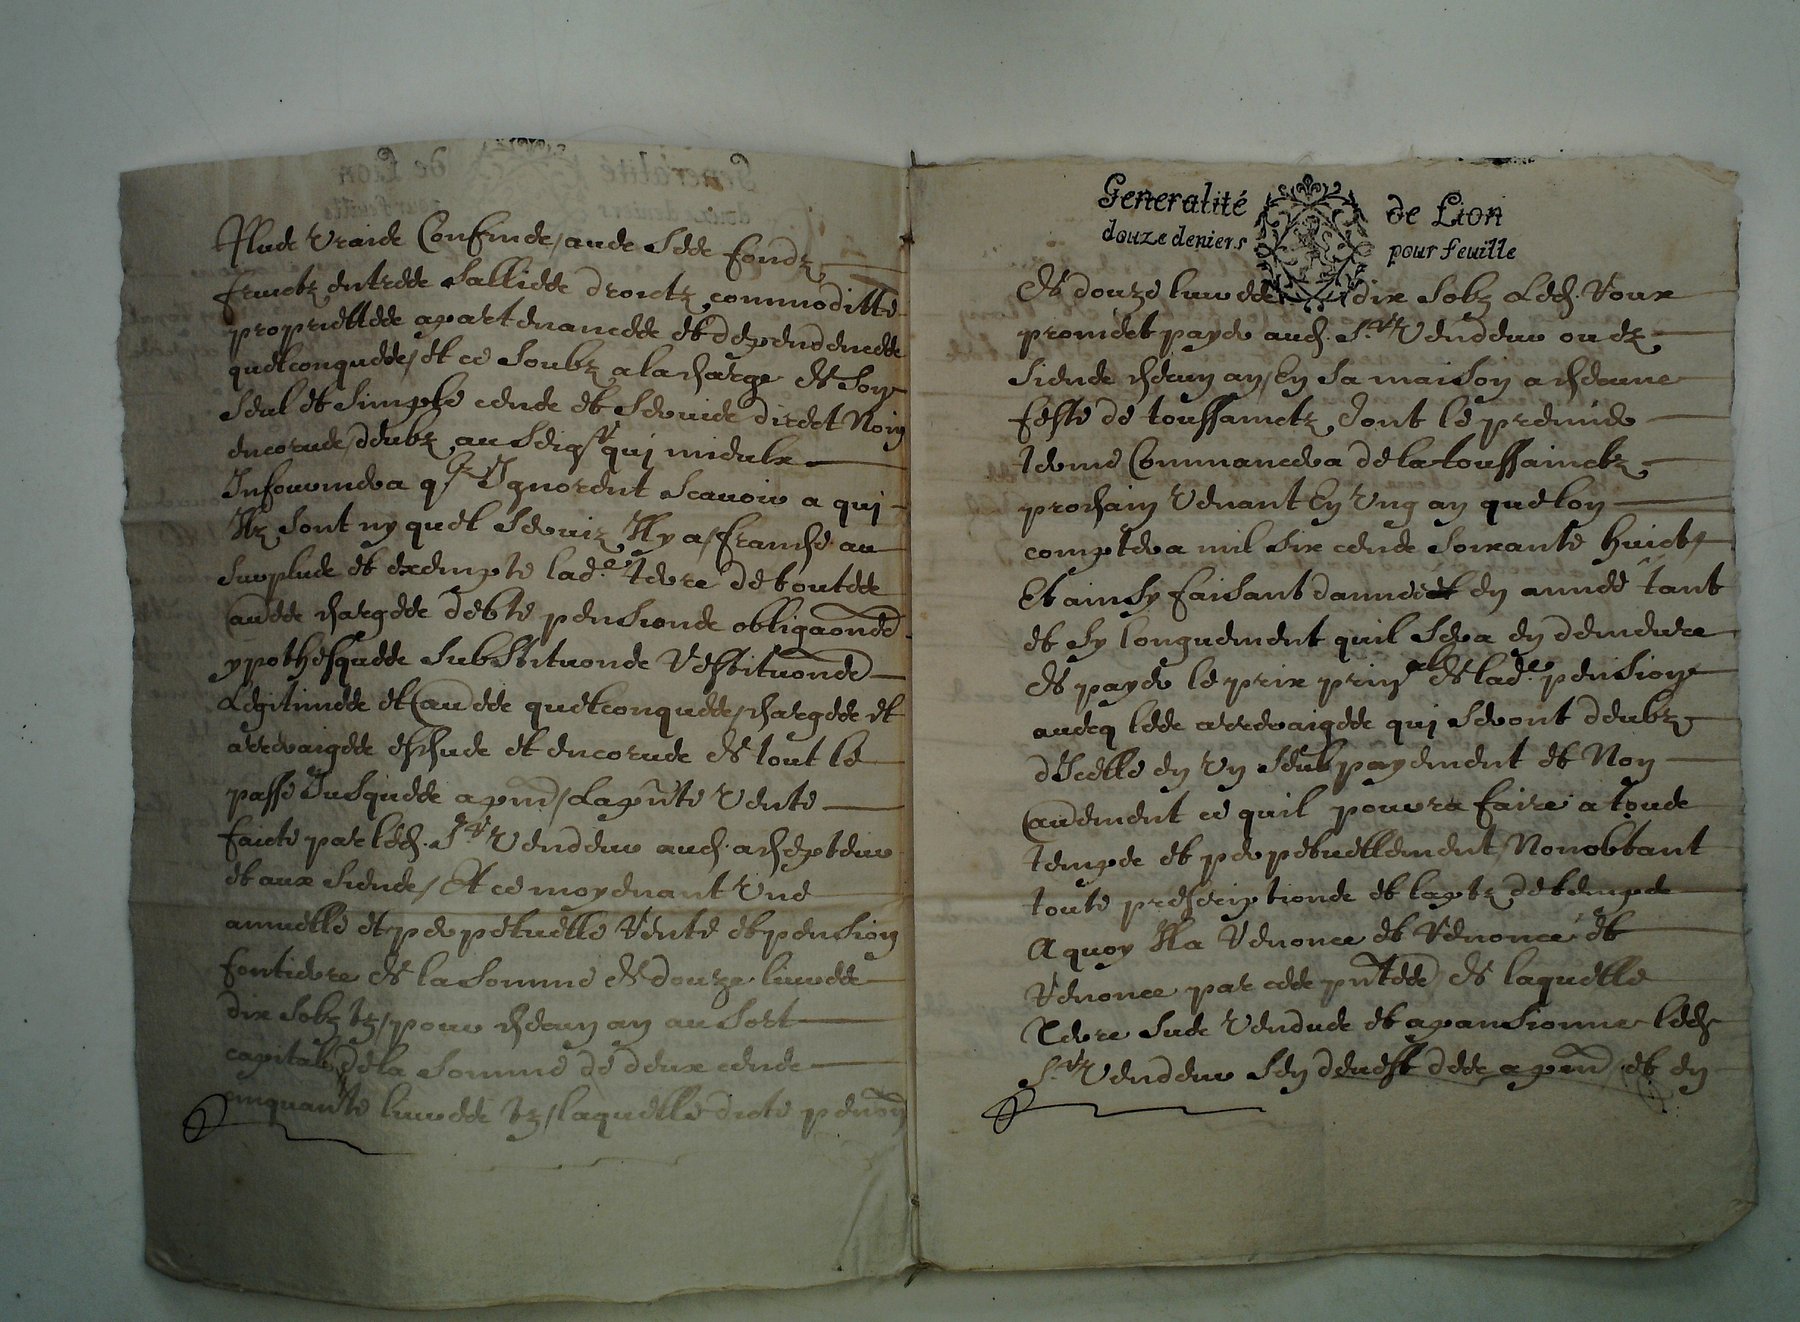 Plus vrais Confins, avec ses fondz
fruictz entrees sallies droictz commodittes
proprietes apartenances et deppendences
quelconques, et ce soubz a la charge de son
seul et simple cens et servis direct Non
encorus, deubz au seigr qui mieulx
Informera qlz Ignorent scavoir a qui
Ilz sont ny quel serviz Il y a, franche au
surplus et exempte lade. terre de toutes
autres charges debte pensions obligaons
ypothesques substituons restituons
Legitimes et autres quelconques, charges et
arreraiges escheus et encorus de tout le
passe Jusques a pnt, La pnte vente
faicte par led. Sr. vendeur aud. achepteur
et aux siens, Et ce moyenant une
annuelle et perpetuelle rente et pension
fontiere de la somme de douze livres
dix solz tz, pour chacun an au sort
capital de la somme de deux cens
cinquante livres tz, laquelle dicte pension
Generalité de Lion
douze deniers pour feuille
de douze livres dix solz Led. Roux
promet payer aud. Sr. vendeur ou ez
siens chacun an, En sa maison a chacune
feste de toussainctz, dont le premier
terme Commancera de la toussainctz
prochain venant En Ung an que lon
comptera mil six cens soixante huict,
Et ainsy faisant dannee en annee tant
et sy longuement quil sera en demeure
de payer le prix prinal de lade. pension
avecq les arreraiges qui seront deubz
dIcelle en un seul payement et Non
autrement ce quil pourra faire a tous
temps et perpetuellement, Nonobtant
toute prescriptions et laptz de temps
A quoy Il a renonce et renonce et
renonce par ces pntes, de laquelle
Terre sus vendue et apansionne led.
Sr. vendeur sen devest des a pnt, et en